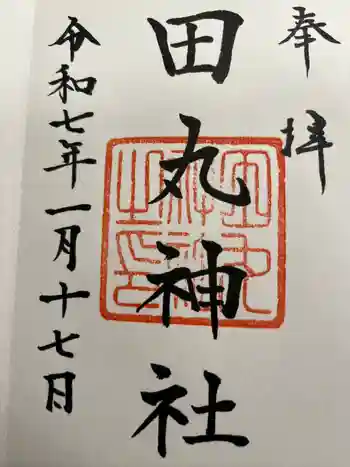 奉拝
田丸神社
令和七年一月十七日